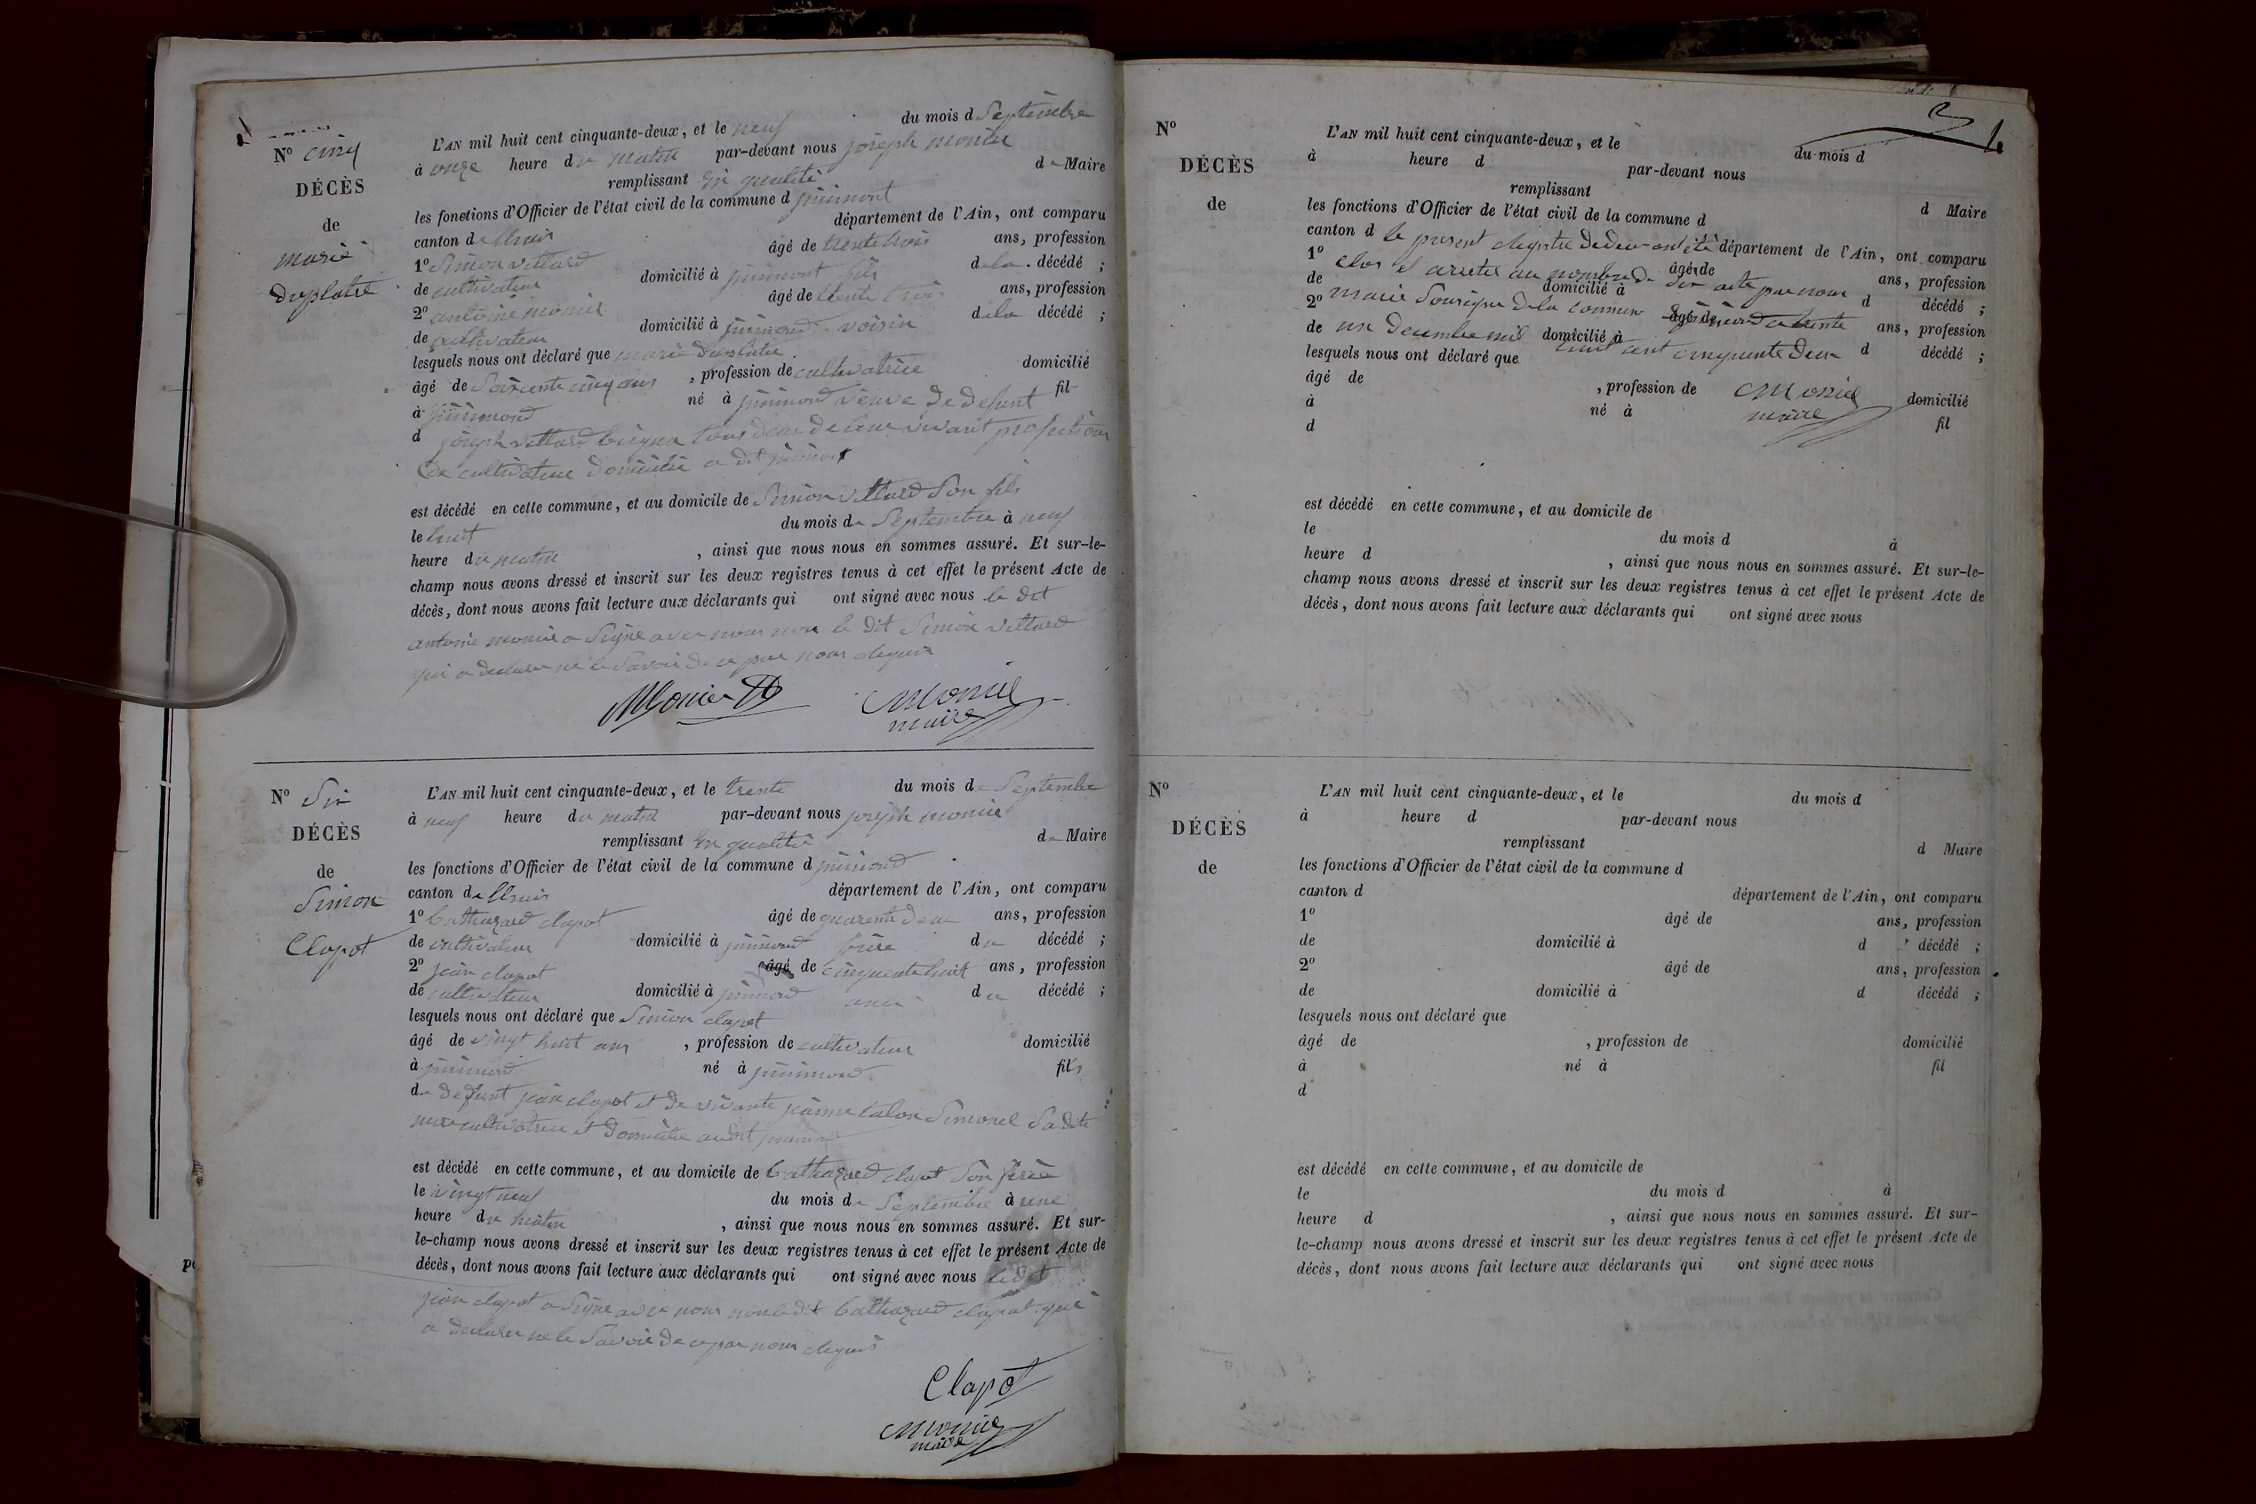 N° cinq
DÉCÈS
de
marie
duplatre
L'AN mil huit cent cinquante-deux, et le neuf du mois d Septembre
à onze heure du matin par-devant nous joseph monier
remplissant en qualité de Maire
les fonctions d'Officier de l'état civil de la commune d
canton de lhuis département de l'Ain, ont comparu
1° Simon vettard âgé de trente trois ans, profession
de cultivateur domicilié à fils de la décédé ;
2° antoine monier âgé de trente trois ans, profession
de cultivateur domicilié à voisin de la décédé ;
lesquels nous ont déclaré que marie duplatre
âgé de Soixante cinq ans, profession de cultivatrice domicilié
à né à veuve de defunt fil
d joseph vettard tous deux de leur vivant profession
De cultivateur domicilié a dit
est décédé en cette commune, et au domicile de Simon vettard Son fils
le huit du mois de Septembre à neuf
heure du matin, ainsi que nous nous en sommes assuré. Et sur-le-
champ nous avons dressé et inscrit sur les deux registres tenus à cet effet le présent Acte de
décès, dont nous avons fait lecture aux déclarants qui ont signé avec nous le dit
antoine monier a Signé avec nous non le dit Simon vettard
qui a declarer ne le Savoir de ce par nous requis
Monier
Monier
maire
N° Six
DÉCÈS
de
Simon
Clapot
L'AN mil huit cent cinquante-deux, et le trente du mois de Septembre
à neuf heure du matin par-devant nous joseph monier
remplissant en qualité de Maire
les fonctions d'Officier de l'état civil de la commune d
canton de lhuis département de l'Ain, ont comparu
1° Balthazard clapot âgé de quarente deux ans, profession
de cultivateur domicilié à frère du décédé ;
2° jean clapot âgé de cinquante huit ans, profession
de cultivateur domicilié à du décédé ;
lesquels nous ont déclaré que Simon clapot
âgé de vingt huit ans, profession de cultivateur domicilié
à né à fils
de defunt jean clapot et de vivante Sadite
mere cultivatrice et domicilié audit
est décédé en cette commune, et au domicile de Balthazard clapot Son frère
le vingt neuf du mois de Septembre à une
heure du matin, ainsi que nous nous en sommes assuré. Et sur-
le-champ nous avons dressé et inscrit sur les deux registres tenus à cet effet le présent Acte de
décès, dont nous avons fait lecture aux déclarants qui ont signé avec nous le dit
jean clapot a Signé avec nous non ledit Balthazard clapot qui
a declarer ne le Savoir de ce par nous requis
Clapot
Monier
maire
N°
DÉCÈS
de
L'AN mil huit cent cinquante-deux, et le du mois d
à heure d par-devant nous
remplissant d Maire
les fonctions d'Officier de l'état civil de la commune d
canton d département de l'Ain, ont comparu
le present registre de deces a été
1° âgé de ans, profession
clos et arreté au nombre de Six acte par nous
de domicilié à d décédé ;
maire Sousigné de la commune
2° âgé de ans, profession
decembre mil huit cent cinquante deux
de domicilié à d décédé ;
lesquels nous ont déclaré que
âgé de , profession de domicilié
Monier
maire
à né à fil
d
est décédé en cette commune, et au domicile de
le du mois d à
heure d , ainsi que nous nous en sommes assuré. Et sur-le-
champ nous avons dressé et inscrit sur les deux registres tenus à cet effet le présent Acte de
décès, dont nous avons fait lecture aux déclarants qui ont signé avec nous
N°
DÉCÈS
de
L'AN mil huit cent cinquante-deux, et le du mois d
à heure d par-devant nous
remplissant d Maire
les fonctions d'Officier de l'état civil de la commune d
canton d département de l'Ain, ont comparu
1° âgé de ans, profession
de domicilié à d décédé ;
2° âgé de ans, profession
de domicilié à d décédé ;
lesquels nous ont déclaré que
âgé de , profession de domicilié
à né à fil
d
est décédé en cette commune, et au domicile de
le du mois d à
heure d , ainsi que nous nous en sommes assuré. Et sur-
le-champ nous avons dressé et inscrit sur les deux registres tenus à cet effet le présent Acte de
décès, dont nous avons fait lecture aux déclarants qui ont signé avec nous